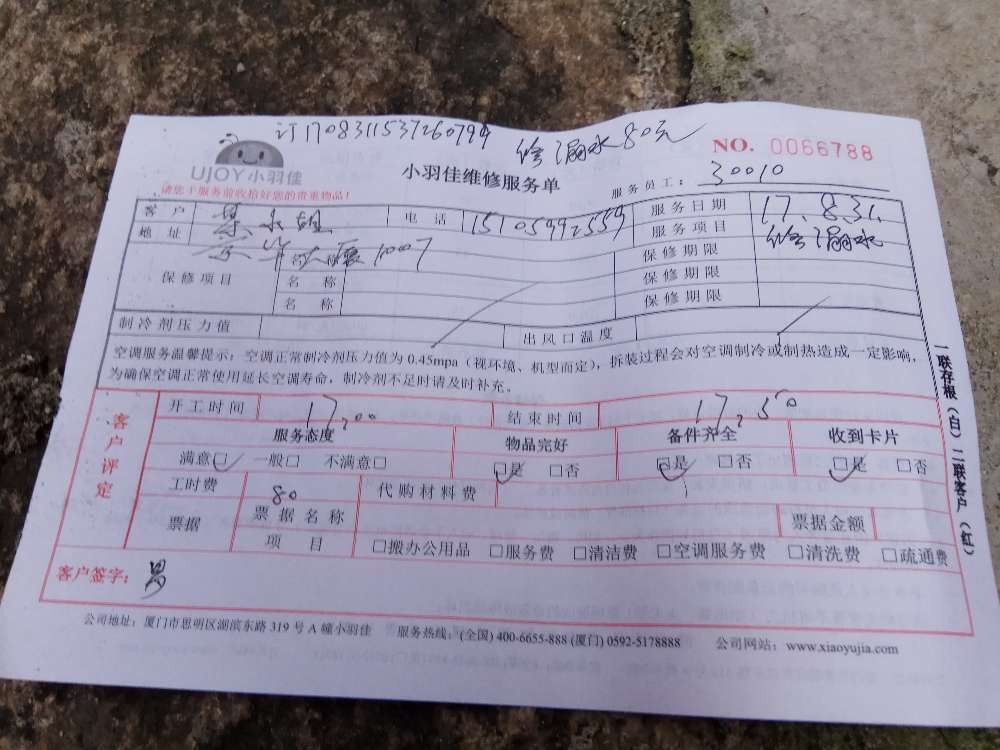 订1708311537260799 修漏水80元
UJOY小羽佳
NO. 0066788
小羽佳维修服务单
请您于服务前收拾好您的贵重物品!
服务员工: 30010
客户 电话 15105992559 服务日期 17.8.31.
地址 1007 服务项目 修漏水
保修项目 名称 保修期限
名称 保修期限
名称 保修期限
制冷剂压力值 出风口温度
空调服务温馨提示:空调正常制冷剂压力值为 0.45mpa(视环境、机型而定),拆装过程会对空调制冷或制热造成一定影响,
为确保空调正常使用延长空调寿命,制冷剂不足时请及时补充。
客户评定
开工时间 17:00 结束时间 17:50
服务态度 物品完好 备件齐全 收到卡片
满意□ 一般□ 不满意□ □是 □否 □是 □否 □是 □否
工时费 80 代购材料费
票据 票据名称 票据金额
项目 □搬办公用品 □服务费 □清洁费 □空调服务费 □清洗费 □疏通费
客户签字:
公司地址:厦门市思明区湖滨东路 319 号 A 幢小羽佳 服务热线:(全国) 400-6655-888 (厦门) 0592-5178888 公司网站:www.xiaoyujia.com
一联存根(白)二联客户(红)